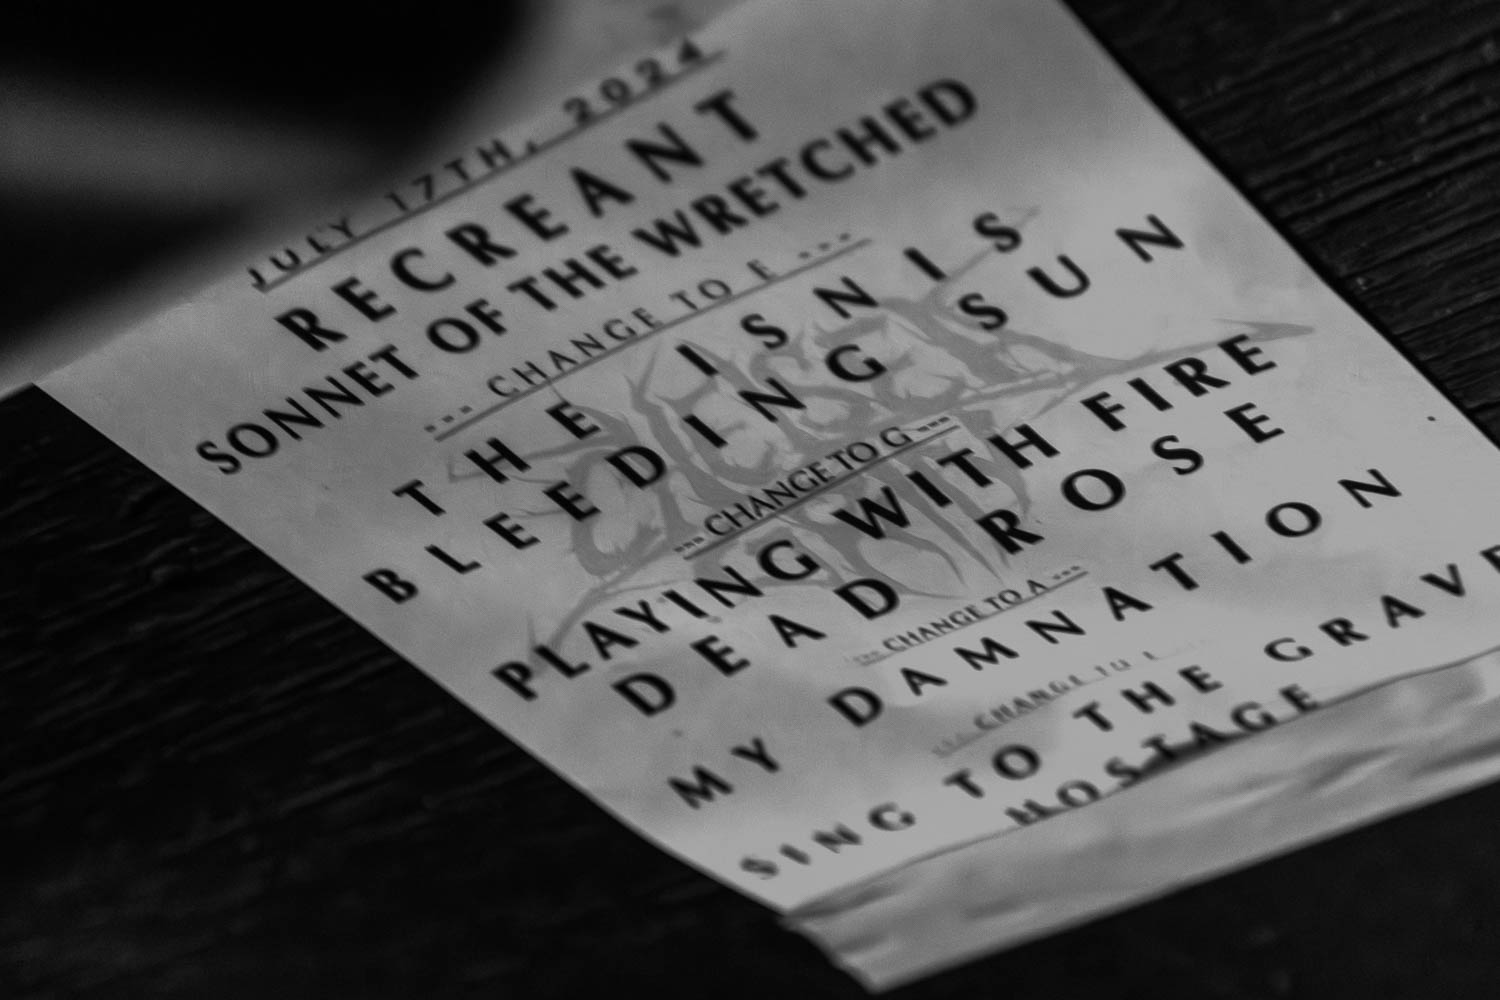 JULY 17TH, 2024
RECREANT
SONNET OF THE WRETCHED
--- CHANGE TO E ---
THE ISNIS
BLEEDING SUN
--- CHANGE TO G ---
PLAYING WITH FIRE
DEAD ROSE
--- CHANGE TO A ---
MY DAMNATION
--- CHANGE TO
SING TO THE GRAVE
HOSTAGE